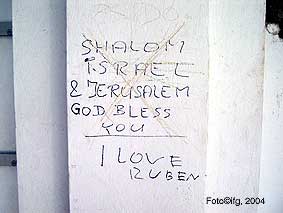 SHALOM
ISRAEL
& JERUSALEM
GOD BLESS
YOU
I LOVE
RUBEN
Foto©ifg, 2004